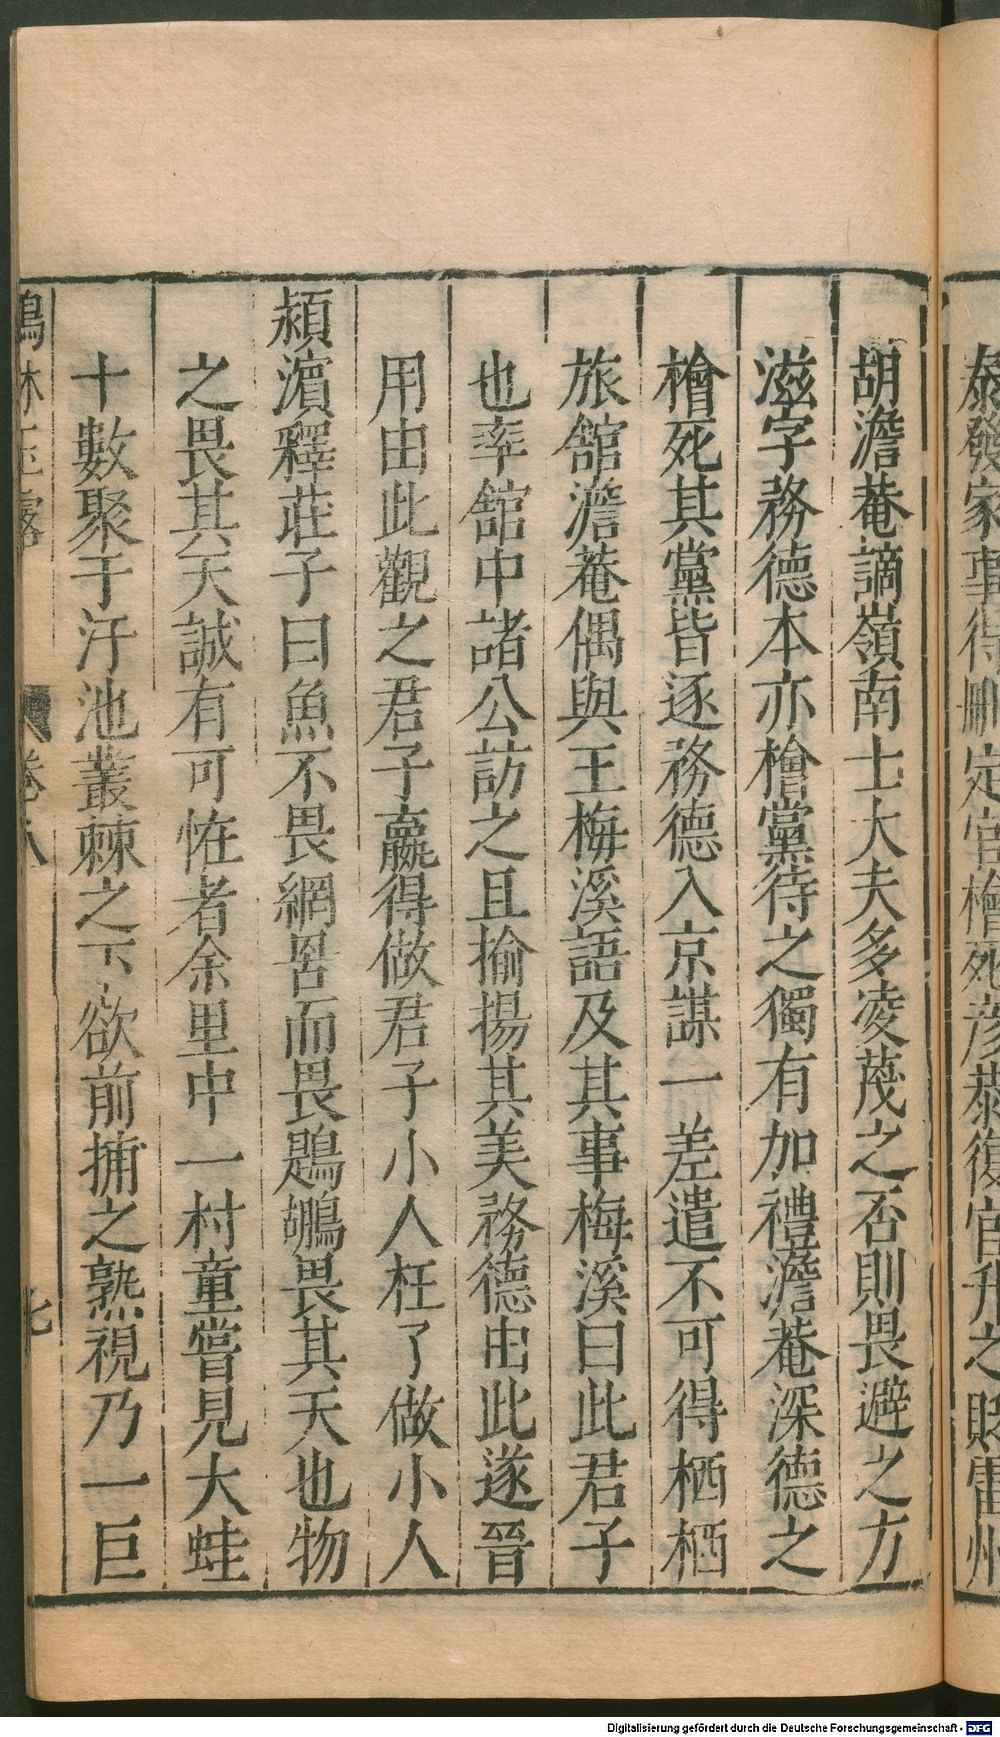 泰發家事得刪定官檜死彥恭復官升之貶雷州
胡澹菴謫嶺南士大夫多凌蔑之否則畏避之方
滋字務德本亦檜黨待之獨有加禮澹菴深德之
檜死其黨皆逐務德入京謀一差遣不可得栖栖
旅舘澹菴偶與王梅溪語及其事梅溪曰此君子
也率舘中諸公訪之且揄揚其美務德由此遂晉
用由此觀之君子贏得做君子小人枉了做小人
潁濵釋莊子曰魚不畏網罟而畏鵜鶘畏其天也物
之畏其天誠有可恠者余里中一村童嘗見大蛙
十數聚于汙池叢棘之下欲前捕之熟視乃一巨
鶴林玉露 卷八 七
Digitalisierung gefördert durch die Deutsche Forschungsgemeinschaft - DFG